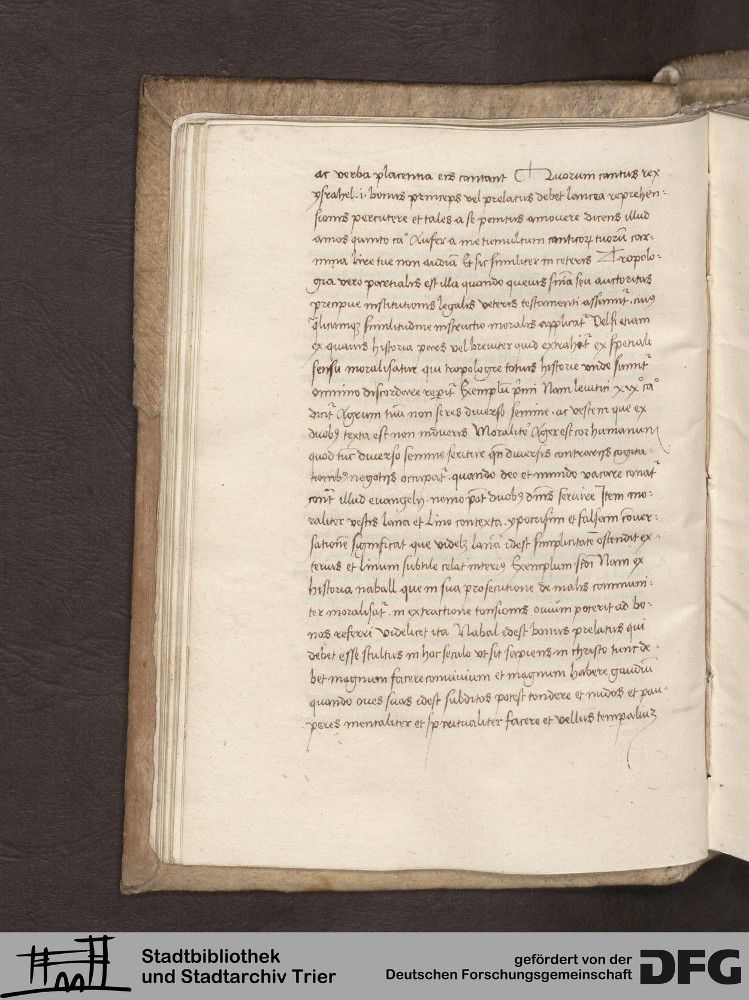 ac verba placentia eis cantant Quorum cantus rex
ysrahel .i. bonus princeps vel prelatus debet lancea reprehen-
sionis percutere et tales a se penitus amovere dicens illud
amos quinto ca° Aufer a me tumultum canticoꝝ tuorū car-
mina lire tue non audiā Et sic similiter in ceteris Tropolo-
gia vero parcialis est illa quando quevis snīa seu auctoritas
precipue institutionis legalis veteris testamenti assumit᷑ cuiꝰ
similitudine instructio moralis applicat᷑ Vel si etiam
ex quavis historia pars vel breviter quid extrahit᷑ ex spetiali
sensu moralisatur qui tropologie totius historie unde sumit᷑
omnino discordare reperit᷑ Exemplū pͥmi Nam levitici xixº caº
dicit᷑ Agrum tuū non seres diverso semine. ac vestem que ex
duobꝰ texta est non indueris Moralit᷑ Ager est cor humanum
quod tūc diverso semine seritur qn̄ diversis contrarijs cogita-
tionibꝰ negotijs occupat᷑. quando deo et mundo vacare conat᷑
cont᷑ illud evangelij. nemo pōt duobꝰ dn̄is servire Item mo-
raliter vestis lana et lino contexta. ypocrisim et falsam cōver-
sationē significat que videlꝫ lanā idest simplicitatē ostendit ex-
terius et linum subtile celat interiꝰ Exemplum scd̄i Nam ex
historia naball. que in sua prosecutione de malis communi-
ter moralisat᷑. in extractione tonsionis ovium poterit ad bo-
nos referri videlicet ita Nabal idest bonus prelatus qui
debet esse stultus in hoc seculo ut sit sapiens in christo tunc de-
bet magnum facere convivium et magnum habere gaudiū
quando oves suas idest subditos potest tondere et nudos et pau-
peres mentaliter et spiritualiter facere et vellus temporaliuꝫ
Stadtbibliothek
und Stadtarchiv Trier
gefördert von der
Deutschen Forschungsgemeinschaft
DFG